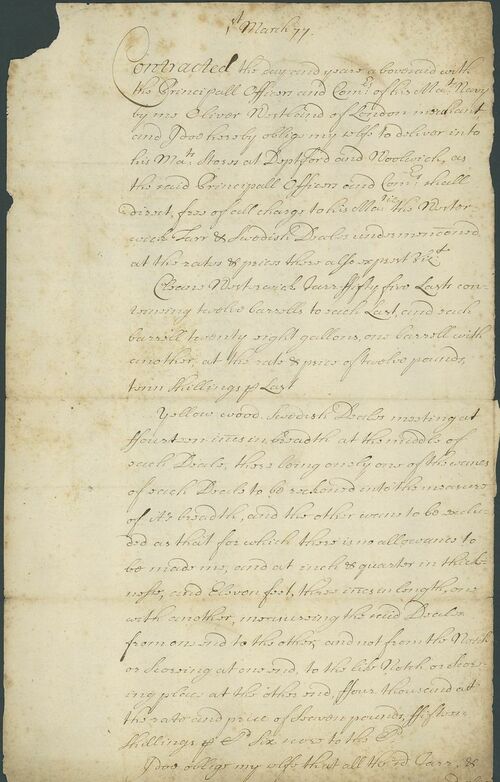 1st March 77.
Contracted the day and yeare abovesaid with
the Principall Officers and Comrs of his Mats Navy
by mee Oliver Westland of London merchant,
and I doe hereby oblige my selfe to deliver into
his Mats Stores at Deptford and Woolwich, as
the said Principall Officers and Comrs shall
direct, free of all charge to his Matie the
Tarr & Swedish Deales undermenconed
at the rates & prices there also exprest vizt
Cleane Tarr ffifty five Lasts con-
teineing twelve barrells to each Last, and each
barrell twenty eight gallons, one barrell with
another, at the rate & price of twelve pounds,
tenn shillings p Last
Yellow wood Swedish Deales meeting at
ffourteen inces in breadth at the middle of
each Deale, there being onely one of the wanes
of each Deale to be reckoned into the measure
of it's breadth, and the other wane to be exclu-
ded as that for which there is no allowance to
be made me, and at inch & quarter in thick-
nesse, and Eleven feet, three inces in length, one
with another, measureing the said Deales
from one end to the other, and not from the Notch
or Scoreing at one end, to the like Notch or Score-
ing place at the other end, ffour thousand at
the rate and price of Seaven pounds, ffifteen
shillings p Ct Six score to the Ct
I doe oblige my selfe that all the sd Tarr &